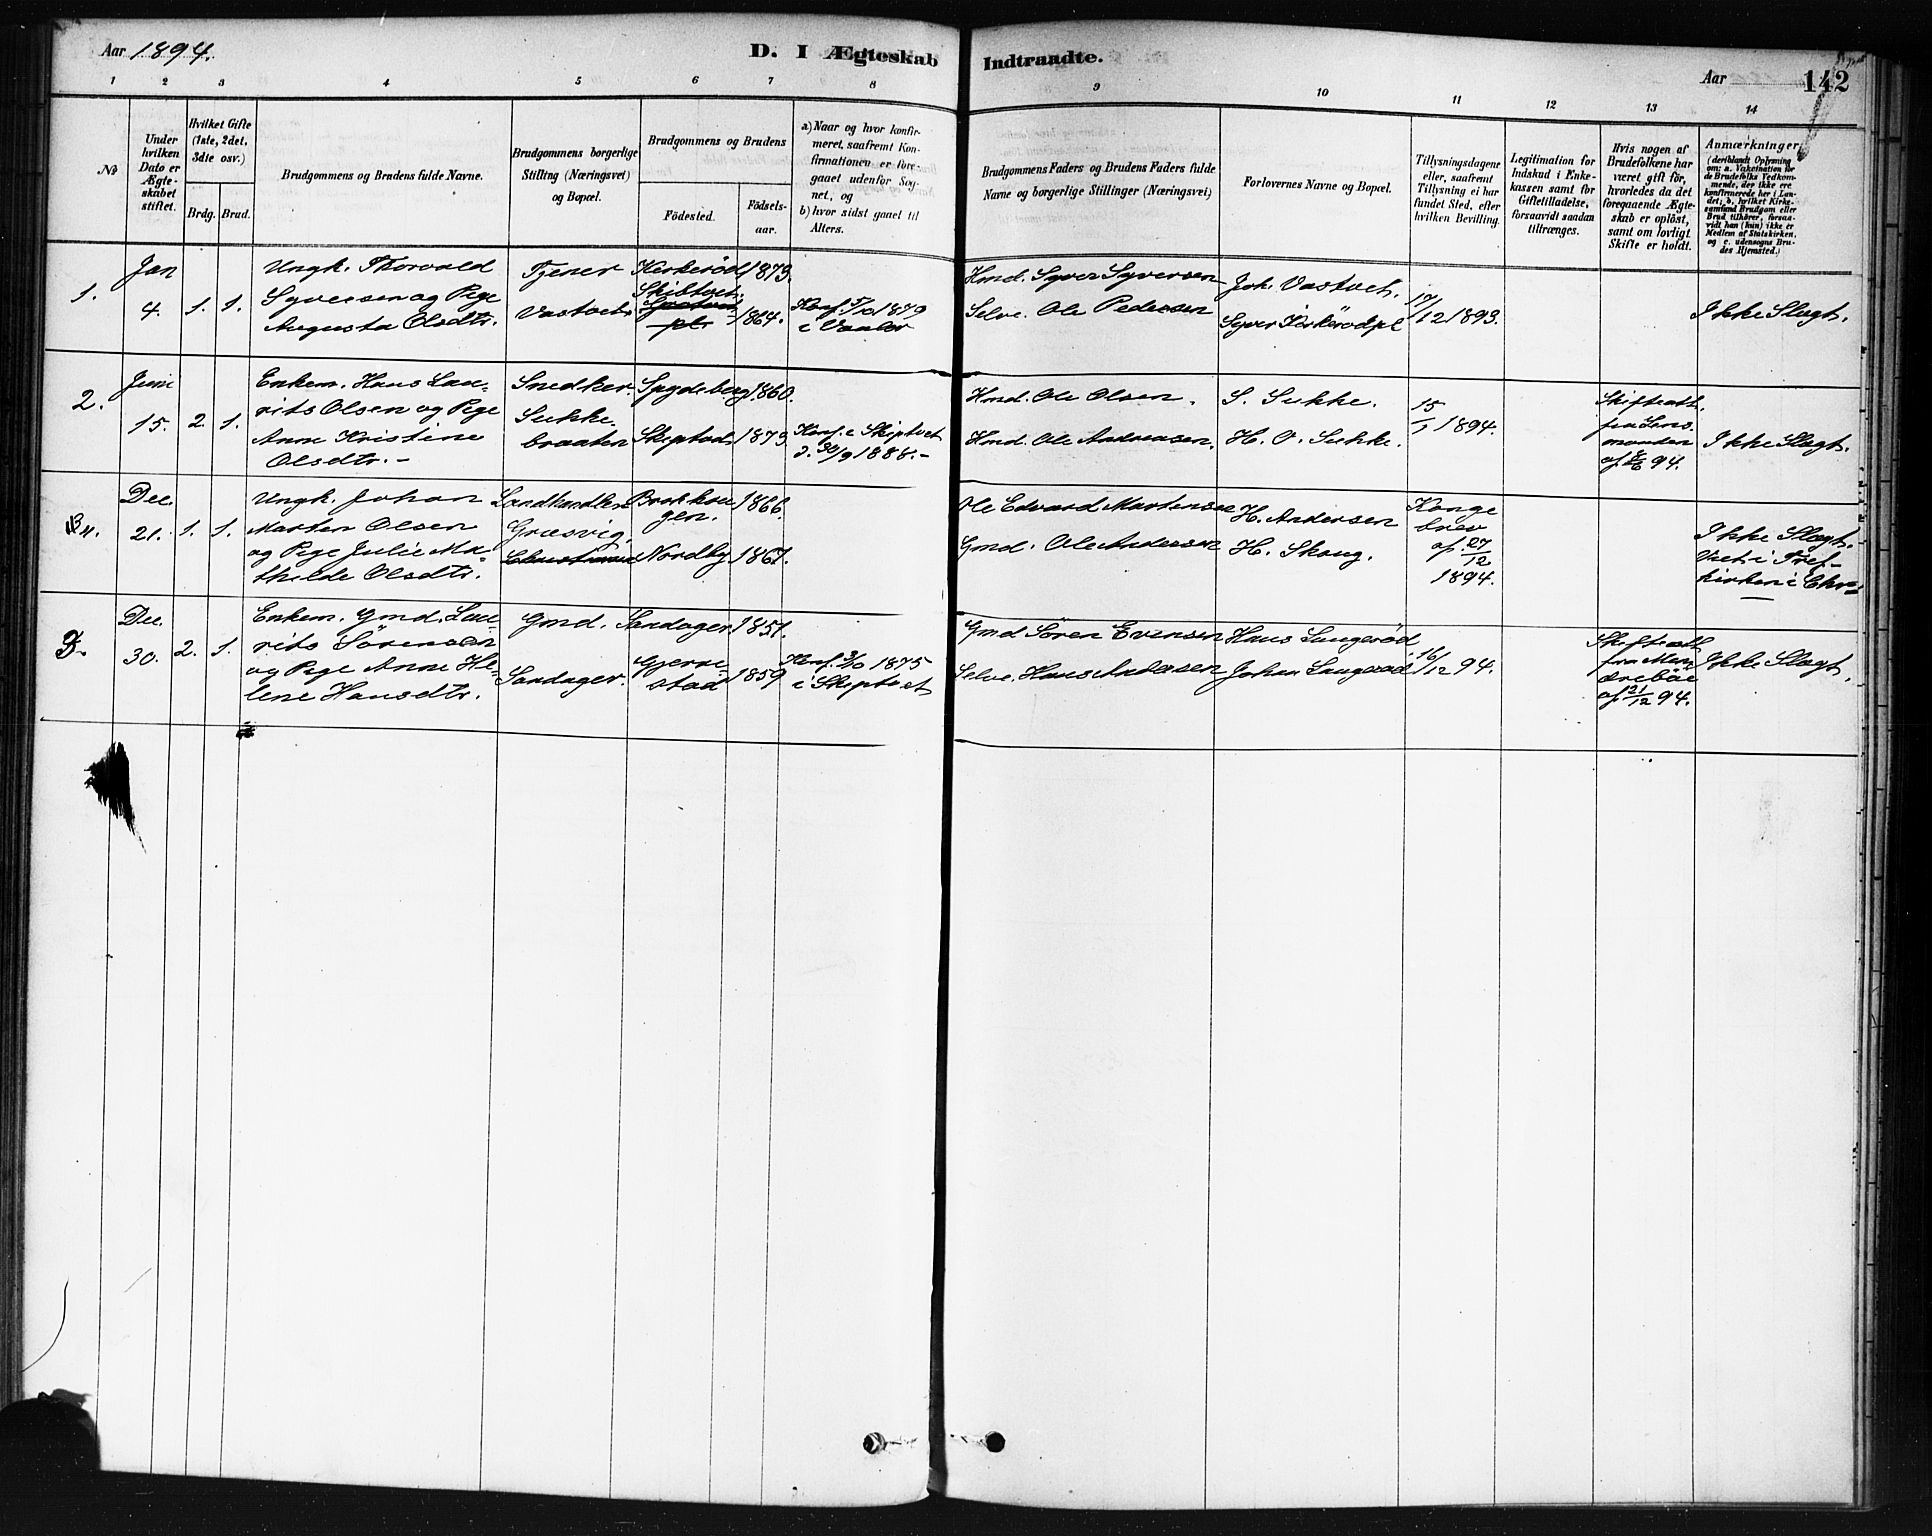 Aar 1894.
D. I Ægteskab Indtraadte.
Aar
142
1 2 3 4 5 6 7 8 9 10 11 12 13 14
No
Under hvilken Dato er Ægteskabet stiftet.
Hvilket Gifte (1ste, 2det, 3die osv.)
Brdg. Brud.
Brudgommens og Brudens fulde Navne.
Brudgommens borgerlige Stilling (Næringsvei) og Bopæl.
Brudgommens og Brudens
Födested.
Födselsaar.
a) Naar og hvor konfirmeret, saafremt Konfirmationen er foregaaet udenfor Sognet, og
b) hvor sidst gaaet til Alters.
Brudgommens Faders og Brudens Faders fulde Navne og borgerlige Stillinger (Næringsvei)
Forlovernes Navne og Bopæl.
Tillysningsdagene eller, saafremt Tillysning ei har fundet Sted, efter hvilken Bevilling.
Legitimation for Indskud i Enkekassen samt for Giftetilladelse, forsaavidt saadan tiltrænges.
Hvis nogen af Brudefolkene har været gift för, hvorledes da det foregaaende Ægteskab er oplöst, samt om lovligt Skifte er holdt.
Anmærkninger
(deriblandt Oplysning om: a. Vakcination for de Brudefolks Vedkommende, der ikke ere konfirmerede her i Landet; b. hvilket Kirkesamfund Brudgom eller Brud tilhörer, forsaavidt han (hun) ikke er Medlem af Statskirken, og c. udensogns Brudes Hjemsted.)
1.
Jan
4.
1. 1.
Ungk. Thorvald
Syversen og Pige
Augusta Olsdtr.
Tjener
Vastvet
Kirkeröd 1873.
Skibtvet
1864.
Konf. 5/10 1879
i Vaaler
Hmd. Syver Syversen
Selve. Ole Pedersen
Joh. Vastvet.
Syver Kirkerödpl
17/12 1893.
Ikke Slegt.
2.
Juni
15.
2. 1.
Enkem. Hans Lau-
rits Olsen og Pige
Anne Kristine
Olsdtr. -
Snedker
Sukke
braaten
Spydeberg 1860.
Skiptvdt 1873.
Konf. i Skiptvet
d. 30/9 1888. -
Hmd. Ole Olsen.
Hmd. Ole Andreasen.
S. Sukke.
H. O. Sukke.
15/1 1894.
Skifteatt.
fra Lens
manden
94.
Ikke Slegt.
Dec.
21.
1. 1.
Ungk. Johan
Marten Olsen
og Pige Julie Ma-
thilde Olsdtr.
Landhandler
Græsvig,
Nordby
1866.
1867.
Ole Edvard Martensen
Gmd. Ole Andersen
H. Andersen
H. Skaug.
Konge
brev
af 27/12
1894.
Ikke Slegt.
Viet i Tref-
kirken i Chr-a
Dec.
30.
2. 1.
Enkem. Gmd. Lau-
rits Sörensen
og Pige Anne He-
lene Hansdtr.
Gmd.
Sandager.
Sandager 1851.
Gjerre
stad 1859
Konf. 3/10 1875
i Skiptvet
Gmd Sören Evensen
Selve. Hans Andersen
Hans Langeröd
Johan Langeröd
16/12 94.
Skifteatt
fra
af 21/12 94.
Ikke Slegt.